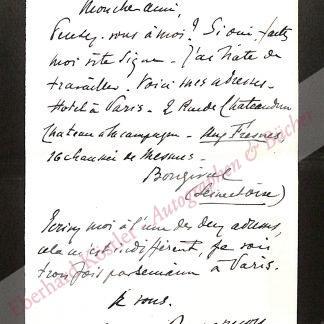 Mon cher ami,
Pensez-vous à moi? Si oui, faites
moi vite signe. J'ai hâte de
travailler. Voici mes adresses.
Hotel à Paris - 2 Rue de Chateaudun
Chateau à la campagne - Huy Fresnes
16 chaussée de Mesmes.
Bougival
(Seine et Oise)
Ecrivez moi à l'une des deux adresses,
cela m'est indifférent, je vais
trois fois par semaine à Paris.
A vous.
Eberhard Köstler - Autographen & Bücher